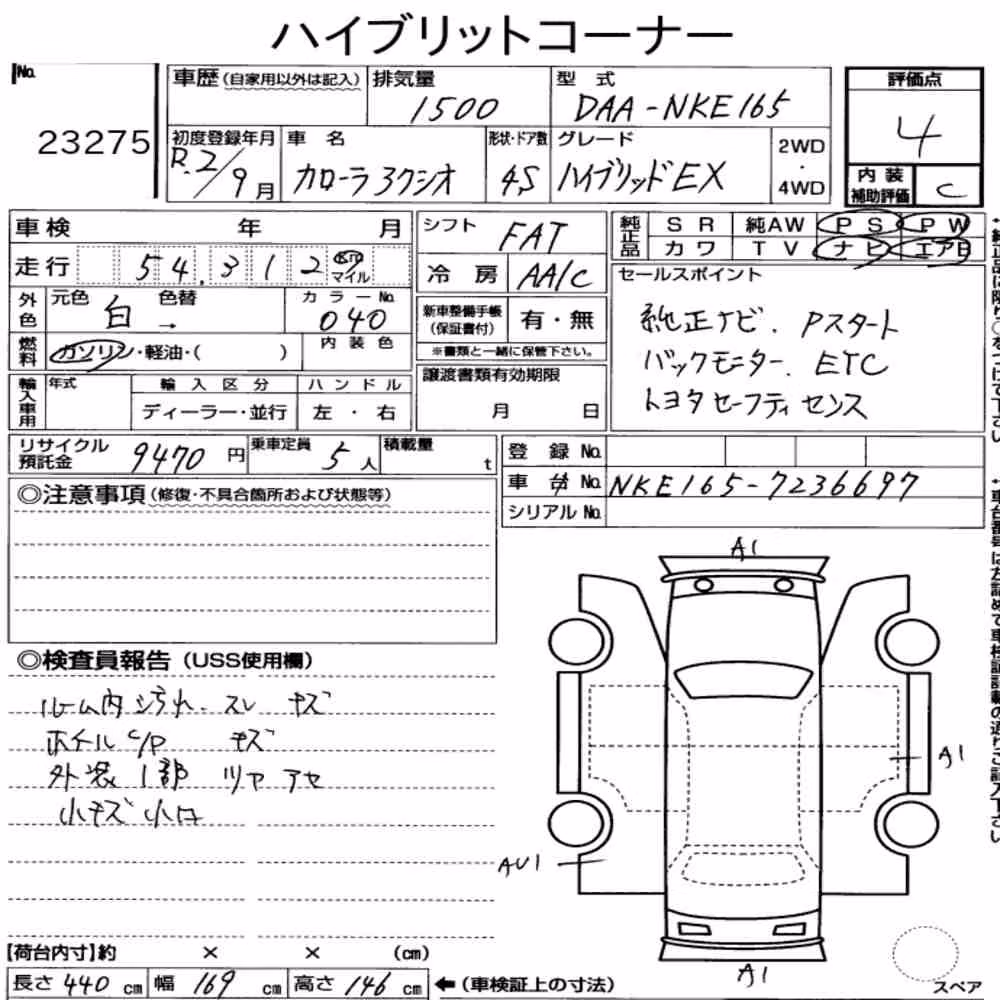 ハイブリットコーナー
No. 23275
車歴(自家用以外は記入) 排気量 1500 型式 DAA-NKE165
評価点 4
初度登録年月 R.2/9月 車名 カローラアクシオ 形状・ドア数 4S グレード ハイブリッドEX 2WD・4WD
内装補助評価 C
車検 年 月
シフト FAT
純正品 SR 純AW PS PW
カワ TV ナビ エアB
走行 54,312 km マイル
冷房 AA/C
セールスポイント
純正ナビ. Pスタート
バックモニター. ETC
トヨタセーフティセンス
外色 元色 白 色替 → カラーNo. 040
新車整備手帳(保証書付) 有・無
※書類と一緒に保管下さい。
燃料 ガソリン・軽油・( ) 内装色
輸入車用 年式 輸入区分 ハンドル
ディーラー・並行 左・右
譲渡書類有効期限
月 日
リサイクル預託金 9470円 乗車定員 5人 積載量 t
登録No.
車台No. NKE165-7236697
シリアルNo.
◎注意事項(修復・不具合箇所および状態等)
◎検査員報告(USS使用欄)
ルーム内汚れ.スレ キズ
ホイールC/P キズ
外装1部 ツヤアセ
小キズ小凹
A1
A1
AU1
A1
スペア
【荷台内寸】約 × × (cm)
長さ 440 cm 幅 169 cm 高さ 146 cm ←(車検証上の寸法)